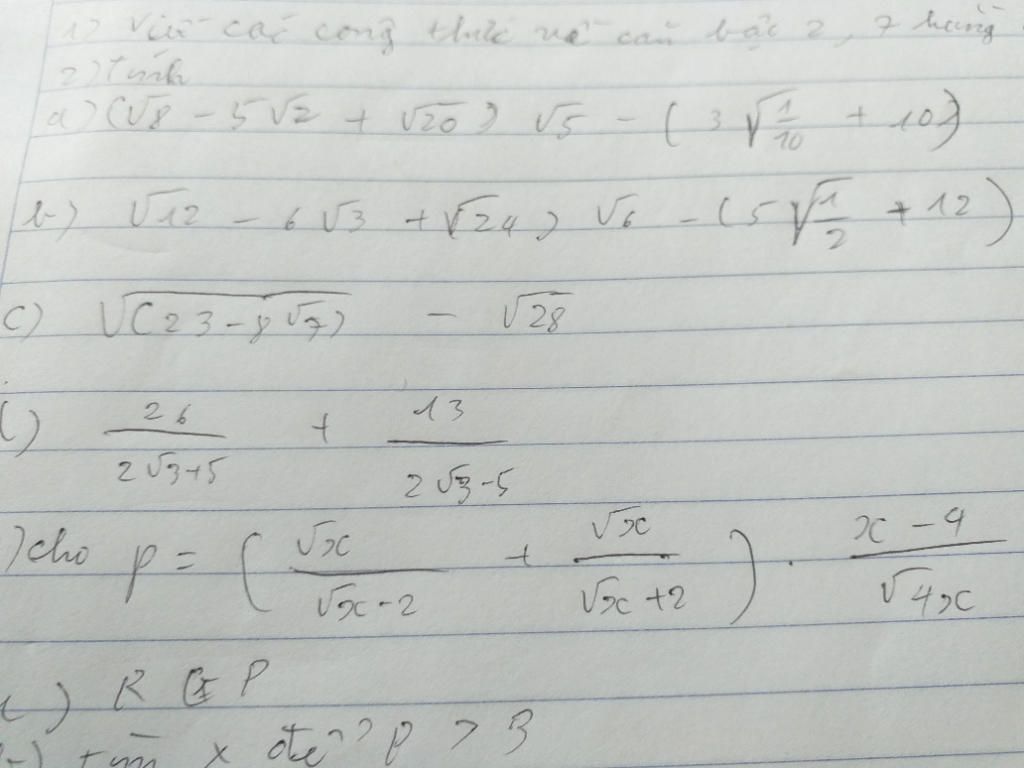 1) Viết các công thức về căn bậc 2, 7 hằng
2) tính
a) (√8 - 5√2 + √20) √5 - (3√(1/10) + 10)
b) √12 - 6√3 + √24) √6 - (5√(1/2) + 12)
c) √(23 - 8√7) - √28
26/(2√3+5) + 13/(2√3-5)
) cho p = (√x/(√x-2) + √x/(√x+2)) . (x-4)/√4x
) R P
) tìm x để p > 3